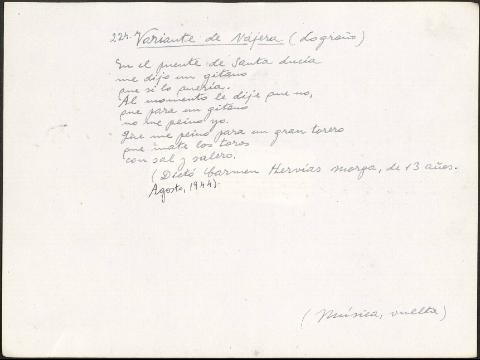 22n. Variante de Nájera (Logroño)
En el puente de Santa Lucía
me dijo un gitano
que si lo quería.
Al momento le dije que no,
que para un gitano
no me peino yo.
Que me peino para un gran torero
que mate los toros
con sal y salero.
(Dictó Carmen Hervías Morga, de 13 años.
Agosto, 1944).
(Música, vuelta)